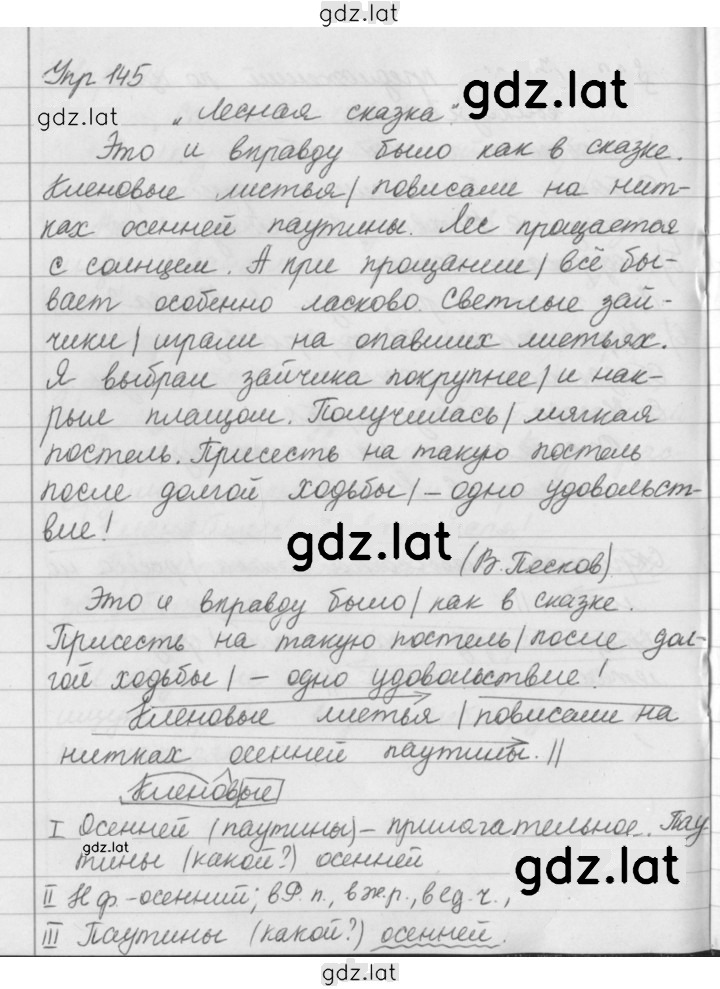 gdz.lat
Упр 145
gdz.lat
gdz.lat
"Лесная сказка".
Это и вправду было как в сказке.
Кленовые листья | повисали на нит-
ках осенней паутины. Лес прощается
с солнцем. А при прощании | всё бы-
вает особенно ласково. Светлые зай-
чики | играли на опавших листьях.
Я выбрал зайчика покрупнее | и нак-
рыл плащом. Получилась | мягкая
постель. Присесть на такую постель
после долгой ходьбы | – одно удовольст-
вие!
gdz.lat
(В. Песков)
Это и вправду было | как в сказке.
Присесть на такую постель | после дол-
гой ходьбы | – одно удовольствие!
Кленовые листья | повисали на
нитках осенней паутины. ||
Кленовые
I Осенней (паутины) – прилагательное. Пау
тины (какой?) осенней
gdz.lat
gdz.lat
II Н.ф.-осенний; в Р.п., в ж.р., в ед.ч.,
III Паутины (какой?) осенней.
gdz.lat